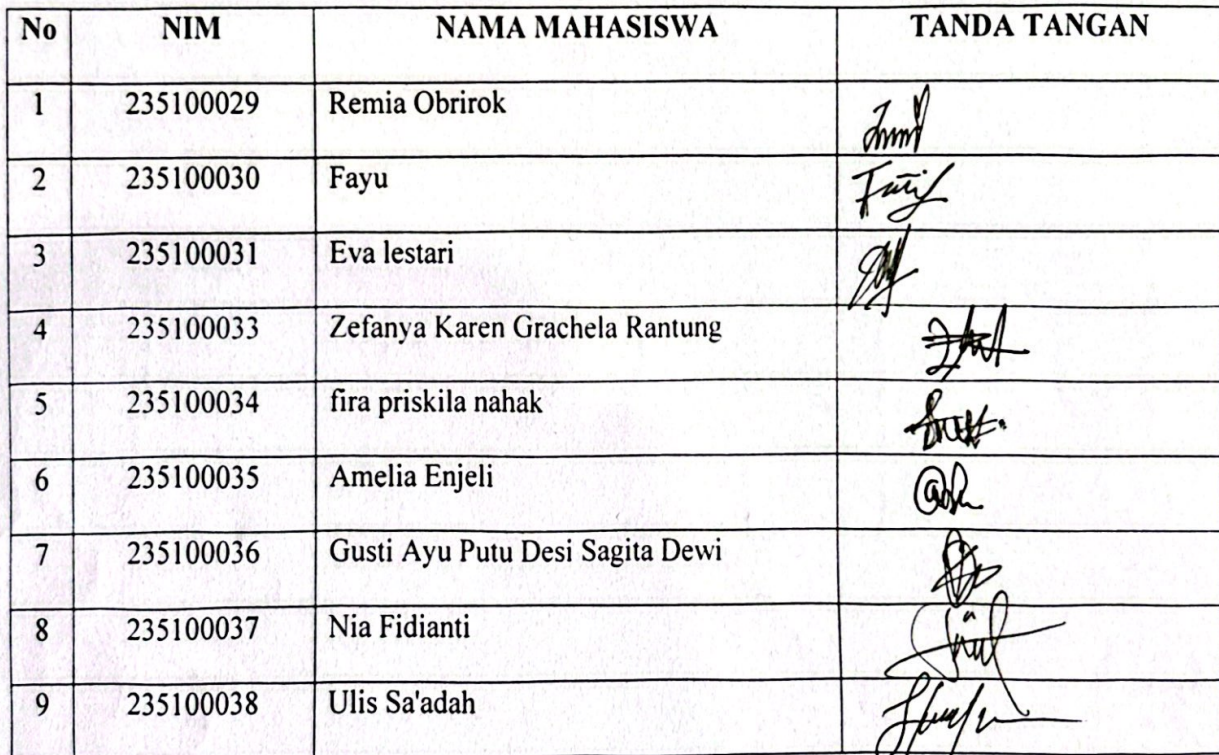 No NIM NAMA MAHASISWA TANDA TANGAN
1 235100029 Remia Obrirok
2 235100030 Fayu
3 235100031 Eva lestari
4 235100033 Zefanya Karen Grachela Rantung
5 235100034 fira priskila nahak
6 235100035 Amelia Enjeli
7 235100036 Gusti Ayu Putu Desi Sagita Dewi
8 235100037 Nia Fidianti
9 235100038 Ulis Sa'adah